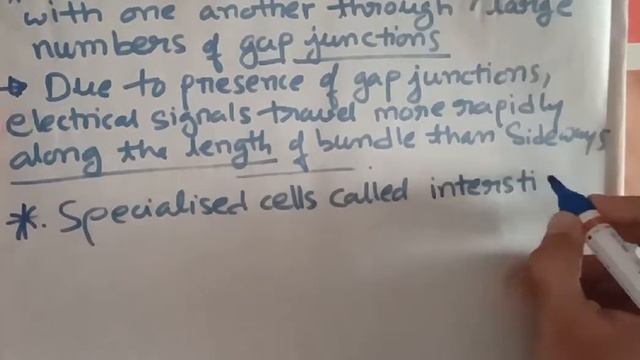 with one another through large
numbers of gap junctions
→ Due to presence of gap junctions,
electrical signals travel more rapidly
along the length of bundle than sideways
*. Specialised cells called intersti